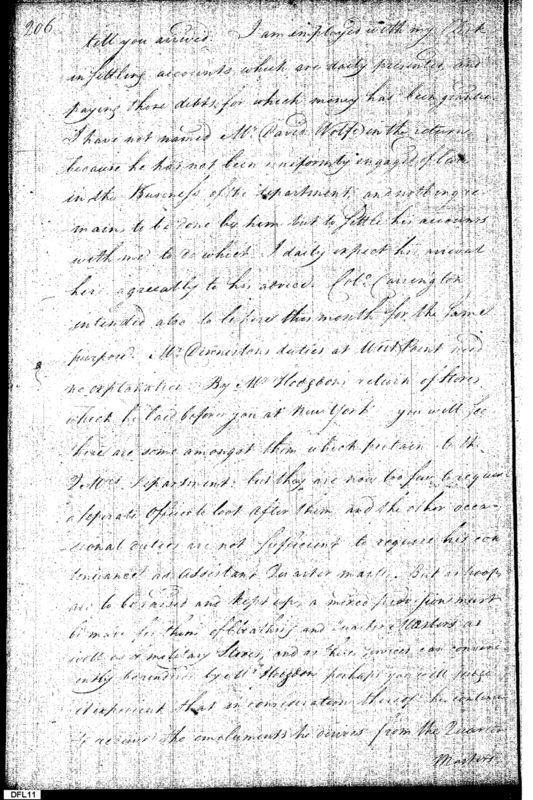 206
till you arrived. I am employed with my Clerk
in settling accounts which are daily presented and
paying those debts for which money has been granted.
I have not named Mr. David Wolfe in the return
because he has not been uniformly engaged of late
in the Business of the department and nothing re-
mains to be done by him but to settle his accounts
with me to do which I daily expect his arrival
here agreeably to his advice. Colo. Carrington
intended also to be here this month for the same
purpose. Mr. duties at West Point need
no explanation. By Mr. Hodgdons return of Stores
which he laid before you at New York you will see
there are some amongst them which pertain to the
Q Mrs department: but they are now too few to require
a seperate Officer to look after them and the other occa-
sional duties are not sufficient to require his con-
tinuance as Assistant Quarter master. But as troops
are to be raised and kept up, a mixed provision must
be made for them of Cloathing and Quarter Masters as
well as military Stores, and as these services can conveni-
ently be rendered by Mr. Hodgdon perhaps you will judge
it expedient that in consideration thereof he continue
to receive the emoluments he derives from the Quarter
Masters
DFL11